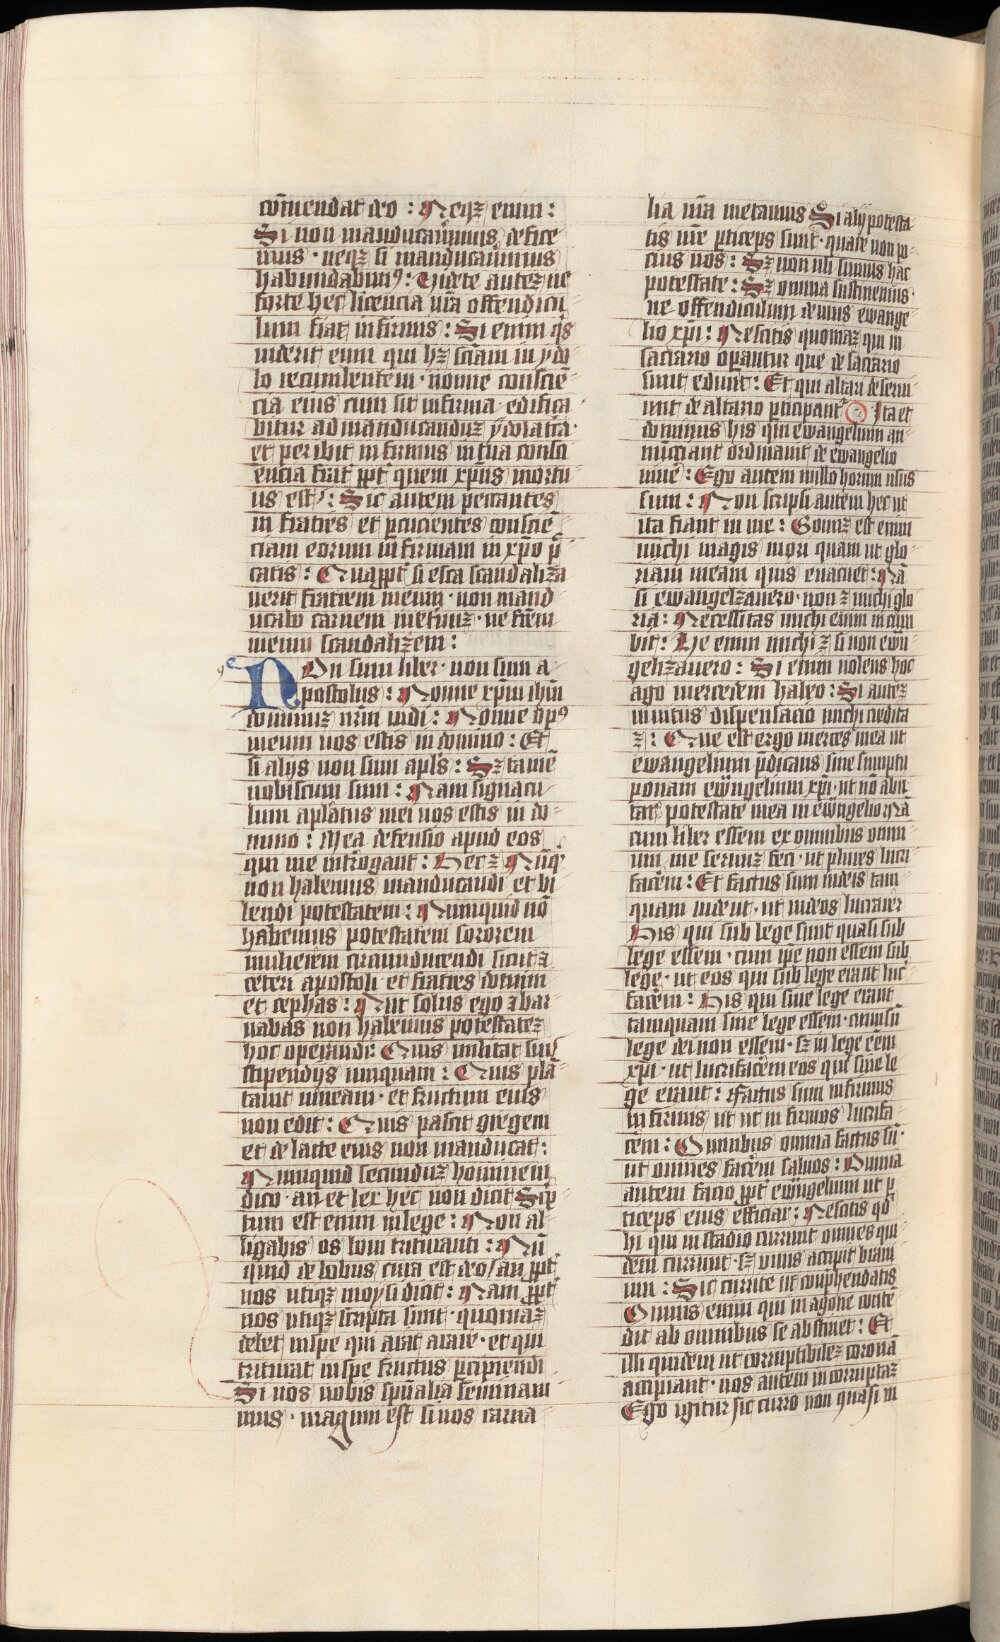 com̄endat deo : Neqȝ enim :
Si non manducauim̄us defice
mus · neqȝ si manducauimus
habundabim⁹ : Videte auteȝ ne
forte hec licencia vr̄a offendicu
lum fiat infirmis : Si enim q̇s
viderit eum qui hȝ sciam in ydo
lo recumbentem · nonne conscīe
cia eius cum sit infirma · edifica
bitur ad manducanduȝ ydolatita ·
et peribit infirmus in tua consci
encia frat̄ ꝓpt̄ quem xp̄us mortu
us est : Sic autem peccantes
in fratres et ꝑcucientes conscīe
ciam eorum infirmam in xp̄o pec
catis : Quaꝓpt̄ si esca scandaliza
uerit fratrem meum · non mand
ucabo carnem in etnuȝ · ne fr̄em
meum scandalizem :
9e
Non sum liber · non sum a
postolus : Nonne xp̄m ih̄m
dominuȝ nr̄m vidi : Nonne op⁹
meum vos estis in domino : Et
si alijs non sum apl̄s : Sȝ tamē
vobiscum sum : Nam signacu
lum aplātus mei vos estis in do
mino : Mea defensio apud eos
qui me int̄rogant : Hec ē : Nūq̇
non habemus manducandi et bi
bendi potestatem : Numquid nō
habemus potestatem sororem
mulierem circumducendi sicut ⁊
ceteri apostoli et fratres domini
et cephas : Aut solus ego ⁊ bar
nabas non habemus potestateȝ
hoc operandi : Quis militat suis
stipendijs umquam : Quis plā
tauit vineam · et fructum eius
non edit : Quis pascit gregem
et de lacte eius non manducat :
Numquid secunduȝ hominem
dico · an et lex hec non dicit Scip̄
tum est enim in lege : Non al
ligabis os boui trituranti : Nū
quid de bobus cura est deo / an ꝓpt̄
nos utiqȝ moysi dicit : Nam ꝓpt̄
nos utiqȝ scripta sunt · quoniaȝ
debet in spe qui arat arare · et qui
triturat in spe fructus ꝑcipiendi
Si nos vobis spūalia seminaui
mus · magnum est si nos carna
lia vr̄a metamus Si alij potesta
tis vr̄e ꝑticeps sunt · quare non po
cius nos : Sȝ non usi sumus hac
potestate : Sȝ omnia sustinemus ·
ne offendiculum demus ewange
lio xp̄i : Nescitis quoniaȝ qui in
sacrario operantur que de sacrario
sunt edunt : Et qui altari deserui
unt de altario ꝑticipant Ita et
dominus his qui ewangelium an
nūciant ordinauit de ewangelio
viue : Ego autem nullo horum usus
sum : Non scripsi autem hec ut
ita fiant in me : Bonuȝ est enim
michi magis mori quam ut glo
riam meam quis euacuet : Nā
si ewangelzauero · non ē michi glo
ria : Necessitas michi enim incum
bit : Ve enim michi ē si non ewn̄
gelizauero : Si enim volens hoc
ago mercedem habeo : Si auteȝ
inuitus dispensacio michi credita
ē : Que est ergo merces mea ut
ewangelium p̄dicans sine sumptu
ponam ewn̄gelium xp̄i · ut nō abu
tar potestate mea in ewn̄gelio Nā
cum liber essem ex omnibus omni
um me seruuȝ feci · ut plures lucri
facem : Et factus sum iudeis tam
quam iudeus · ut iudeos lucrarer
His qui sub lege sunt quasi sub
lege essem · cum ip̄e non essem sub
lege · ut eos qui sub lege erant luc̄
facem : His qui sine lege erant
tamquam sine lege essem · cum sū
lege dei non essem · sȝ in lege eēm
xp̄i · ut lucrifacem eos qui sine le
ge erant : Factus sum infirmis
infirmus ut ut infirmos lucrifa
cem : Omnibus omnia factus sū ·
ut omnes facem saluos : Omnia
autem facio ꝓpt̄ ewn̄gelium ut ꝑ
ticeps eius efficiar : Nescitis qd̄
hi qui in stadio currunt omnes qui
dem currunt · sȝ unus accipit braui
um : Sic currite ut comphendatis
Omnis enim qui in agone conte
dit ab omnibus se abstinet : Et
illi quidem ut corruptibileȝ coronā
accipiant · nos autem incorruptaȝ
Ego igitur sic curro non quasi in